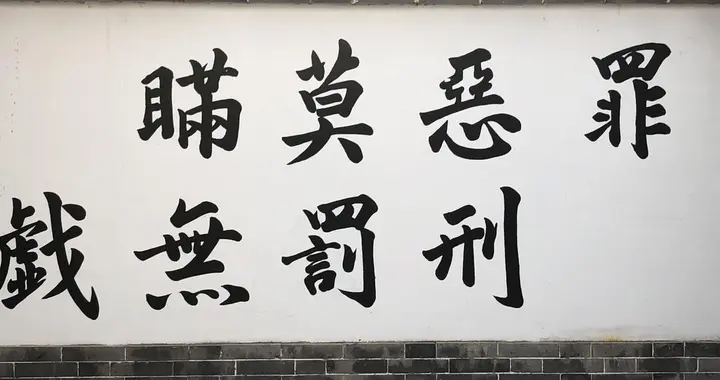 罪惡莫瞞
刑罰無戱